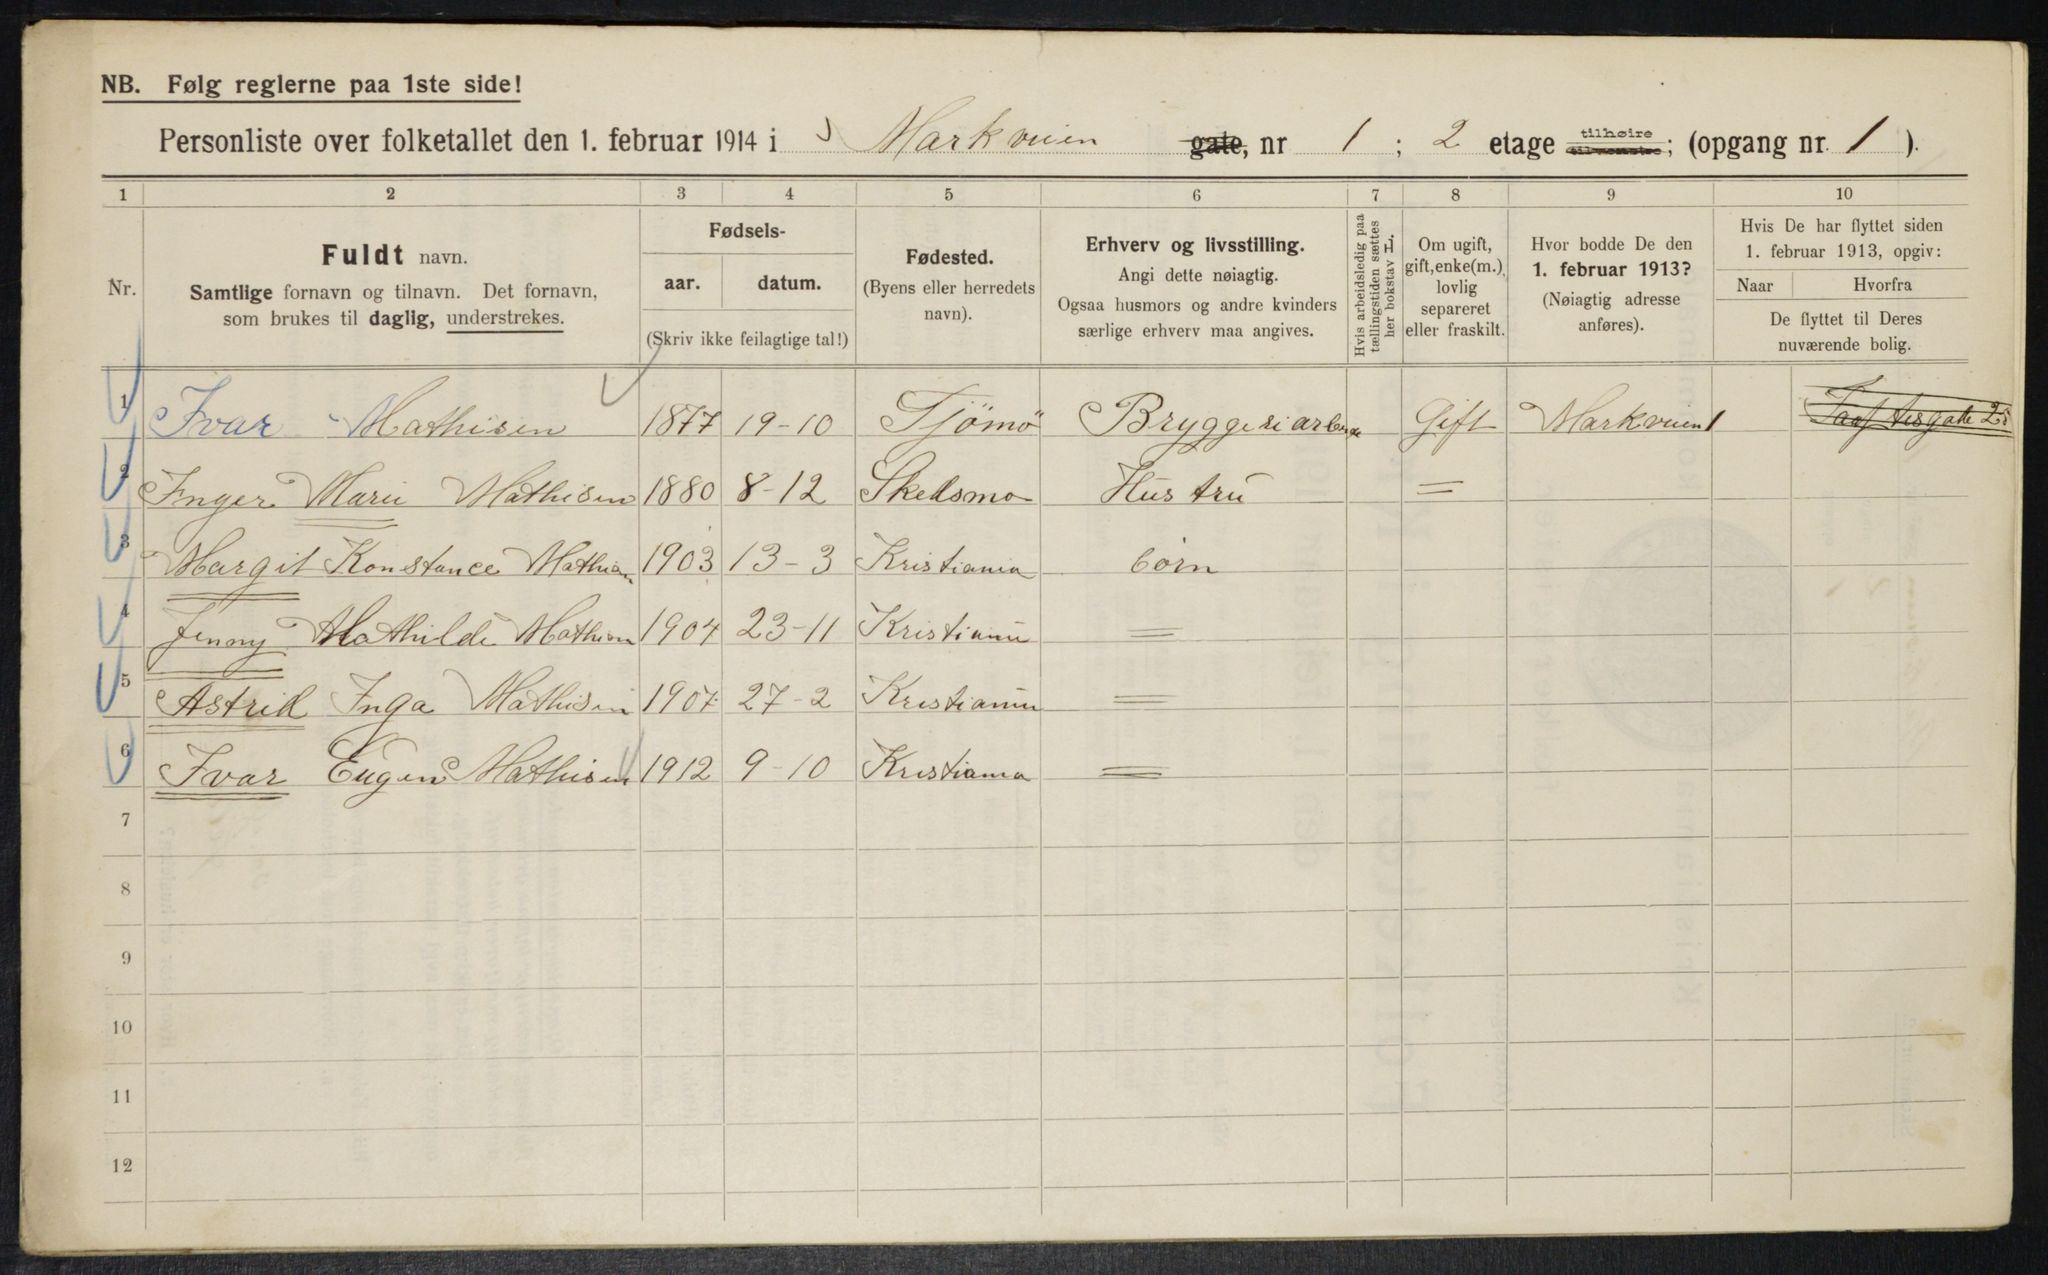 NB. Følg reglerne paa 1ste side!
Personliste over folketallet den 1. februar 1914 i Markveien gate, nr 1 ; 2 etage tilhøire tilvenstre; (opgang nr. 1 ).
1 2 3 4 5 6 7 8 9 10
Nr.
Fuldt navn.
Samtlige fornavn og tilnavn. Det fornavn,
som brukes til daglig, understrekes.
Fødsels-
aar. datum.
(Skriv ikke feilagtige tal!)
Fødested.
(Byens eller herredets
navn).
Erhverv og livsstilling.
Angi dette nøiagtig.
Ogsaa husmors og andre kvinders
særlige erhverv maa angives.
Hvis arbeidsledig paa
tællingstiden sættes
her bokstav L.
Om ugift,
gift, enke(m.),
lovlig
separeret
eller fraskilt.
Hvor bodde De den
1. februar 1913?
(Nøiagtig adresse
anføres).
Hvis De har flyttet siden
1. februar 1913, opgiv:
Naar Hvorfra
De flyttet til Deres
nuværende bolig.
1 Ivar Mathisen 1877 19-10 Tjömö Bryggeriarbeide Gift Markveien 1
2 Inger Marie Mathisen 1880 8-12 Skedsmo Hustru =
3 Margit Konstance Mathisen 1903 13-3 Kristiania børn
4 Jenny Mathilde Mathisen 1904 23-11 Kristiania =
5 Astrid Inga Mathisen 1907 27-2 Kristiania =
6 Ivar Eugen Mathisen 1912 9-10 Kristiania =
7
8
9
10
11
12